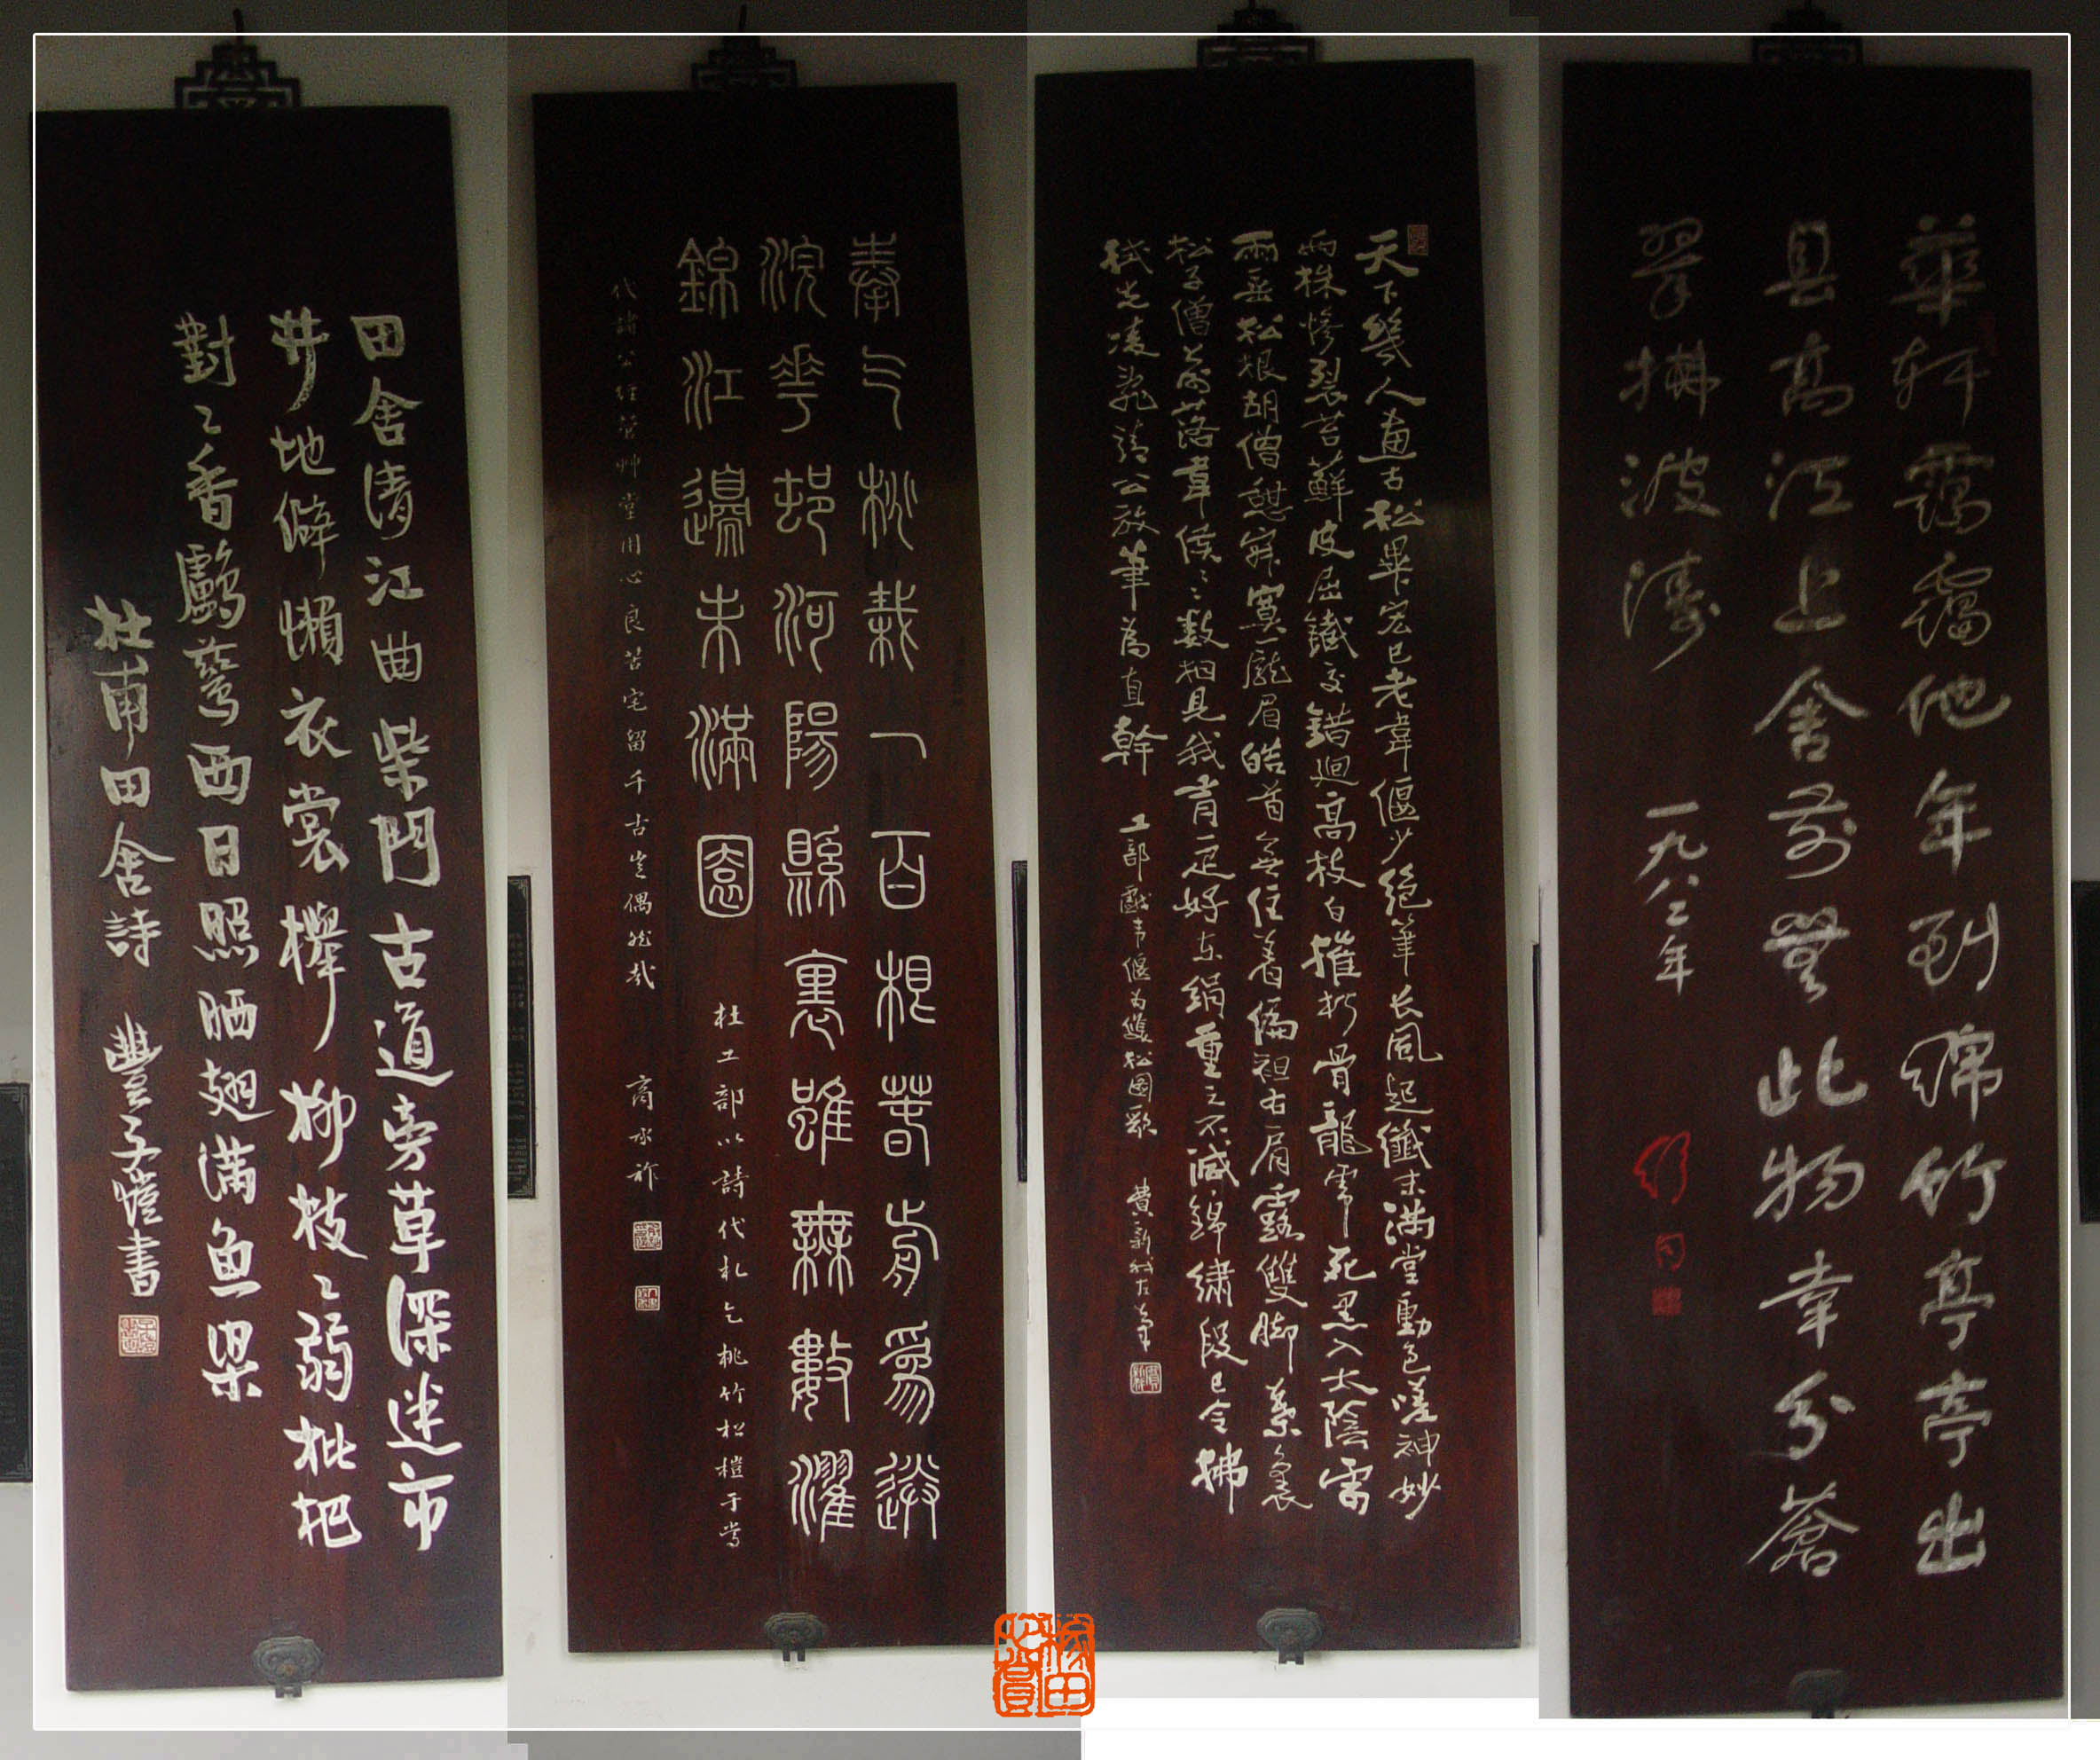 華軒藹藹他年到綿竹亭亭出
县高江上舍前無此物幸分蒼
翠拂波濤
一九八二年
天下幾人畫古松畢宏已老韋偃少絕筆长風起纖末满堂動色嗟神妙
两株惨裂苔蘚皮屈鐵交錯迴高枝白摧朽骨龍虎死黑入太陰雷
雨垂松根胡僧憩寂寞龐眉皓首無住着偏袒右肩露雙脚葉裏
松子僧前落韋侯々数相見我有一疋好东絹重之不减錦繡段已令拂
拭光凌亂請公放筆為直幹
工部戲韦偃为雙松图歌 費新我左筆
奉乞桃栽一百根春前為送
浣花邨河陽縣裏雖無數濯
錦江邊未滿園
杜工部以詩代札乞桃竹松榿于當
代諸公經營艸堂用心良苦宅留千古豈偶然哉 商承祚
田舍清江曲柴門古道旁草深迷市
井地僻懶衣裳櫸柳枝々弱枇杷
對々香鸕鶿西日照晒翅满魚梁
杜甫田舍詩 豐子愷書